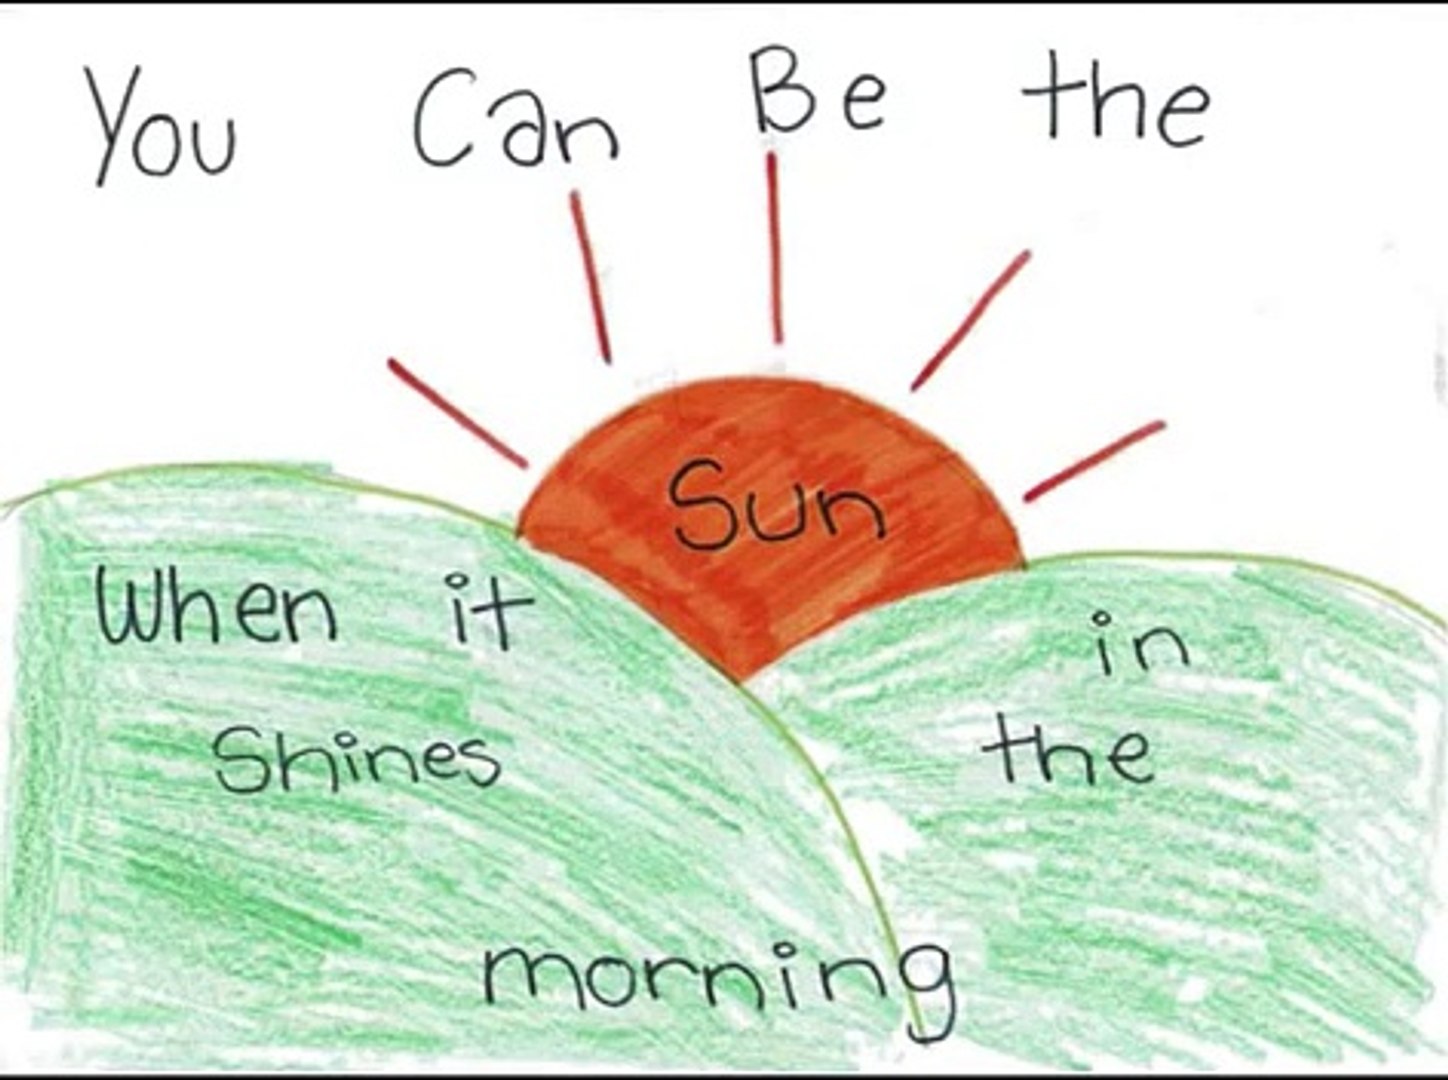 You Can Be the
Sun
When it
Shines
in
the
morning